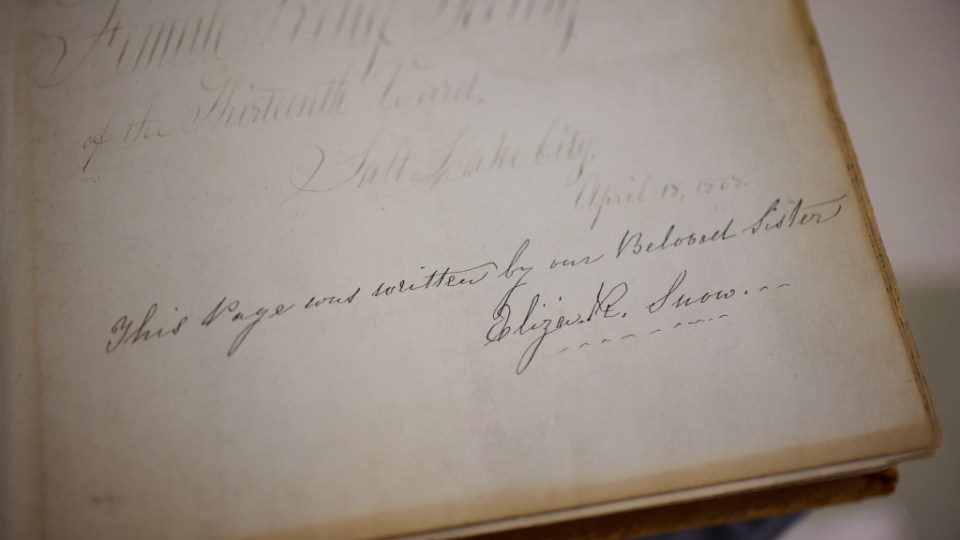 Female Relief Society
of the Thirteenth Ward,
Salt Lake City.
April 18, 1868.
This Page was written by our Beloved Sister
Eliza. R. Snow.